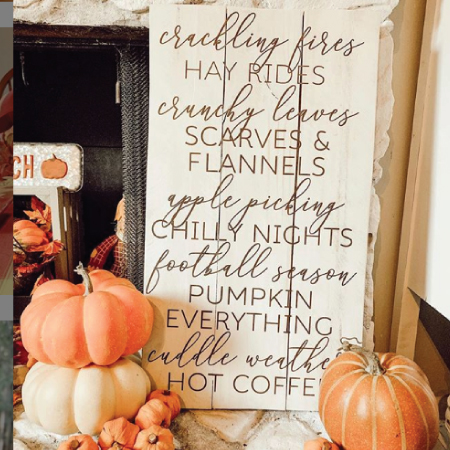 CH
crackling fires
HAY RIDES
crunchy leaves
SCARVES &
FLANNELS
apple picking
CHILLY NIGHTS
football season
PUMPKIN
EVERYTHING
cuddle weather
HOT COFFEE